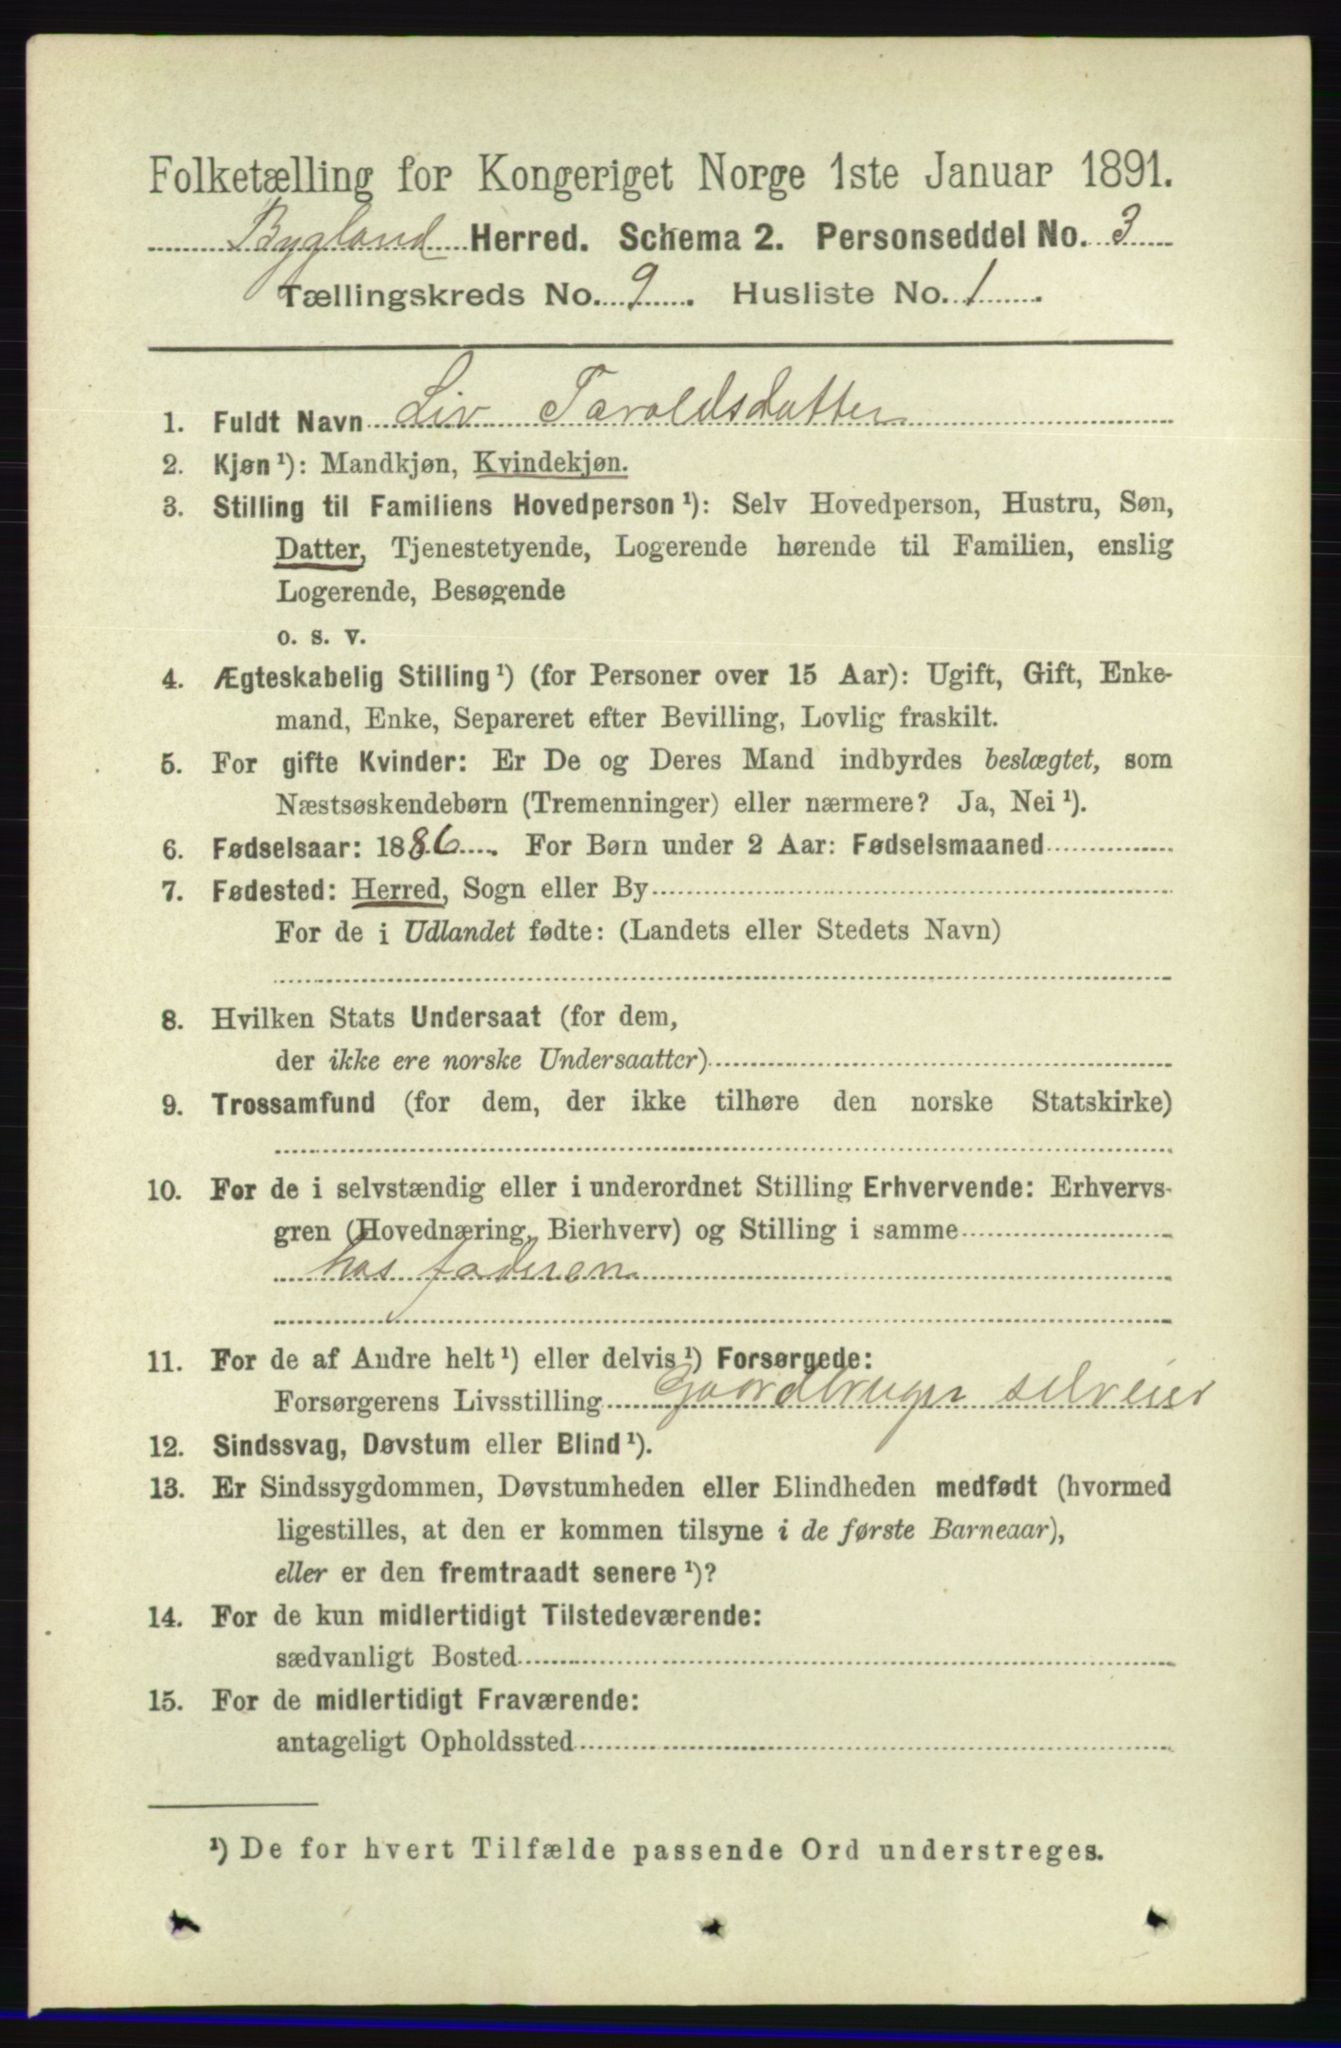 Folketælling for Kongeriget Norge 1ste Januar 1891.
Bygland Herred. Schema 2. Personseddel No. 3
Tællingskreds No. 9. Husliste No. 1.
1. Fuldt Navn Liv Taroldsdatter
2. Kjøn¹): Mandkjøn, Kvindekjøn.
3. Stilling til Familiens Hovedperson¹): Selv Hovedperson, Hustru, Søn,
Datter, Tjenestetyende, Logerende hørende til Familien, enslig
Logerende, Besøgende
o. s. v.
4. Ægteskabelig Stilling¹) (for Personer over 15 Aar): Ugift, Gift, Enke-
mand, Enke, Separeret efter Bevilling, Lovlig fraskilt.
5. For gifte Kvinder: Er De og Deres Mand indbyrdes beslægtet, som
Næstsøskendebørn (Tremenninger) eller nærmere? Ja, Nei¹).
6. Fødselsaar: 1886. For Børn under 2 Aar: Fødselsmaaned
7. Fødested: Herred, Sogn eller By
For de i Udlandet fødte: (Landets eller Stedets Navn)
8. Hvilken Stats Undersaat (for dem,
der ikke ere norske Undersaatter)
9. Trossamfund (for dem, der ikke tilhøre den norske Statskirke)
10. For de i selvstændig eller i underordnet Stilling Erhvervende: Erhvervs-
gren (Hovednæring, Bierhverv) og Stilling i samme
hos faderen
11. For de af Andre helt¹) eller delvis¹) Forsørgede:
Forsørgerens Livsstilling Gaardbruger selveier
12. Sindssvag, Døvstum eller Blind¹).
13. Er Sindssygdommen, Døvstumheden eller Blindheden medfødt (hvormed
ligestilles, at den er kommen tilsyne i de første Barneaar),
eller er den fremtraadt senere¹)?
14. For de kun midlertidigt Tilstedeværende:
sædvanligt Bosted
15. For de midlertidigt Fraværende:
antageligt Opholdssted
¹) De for hvert Tilfælde passende Ord understreges.